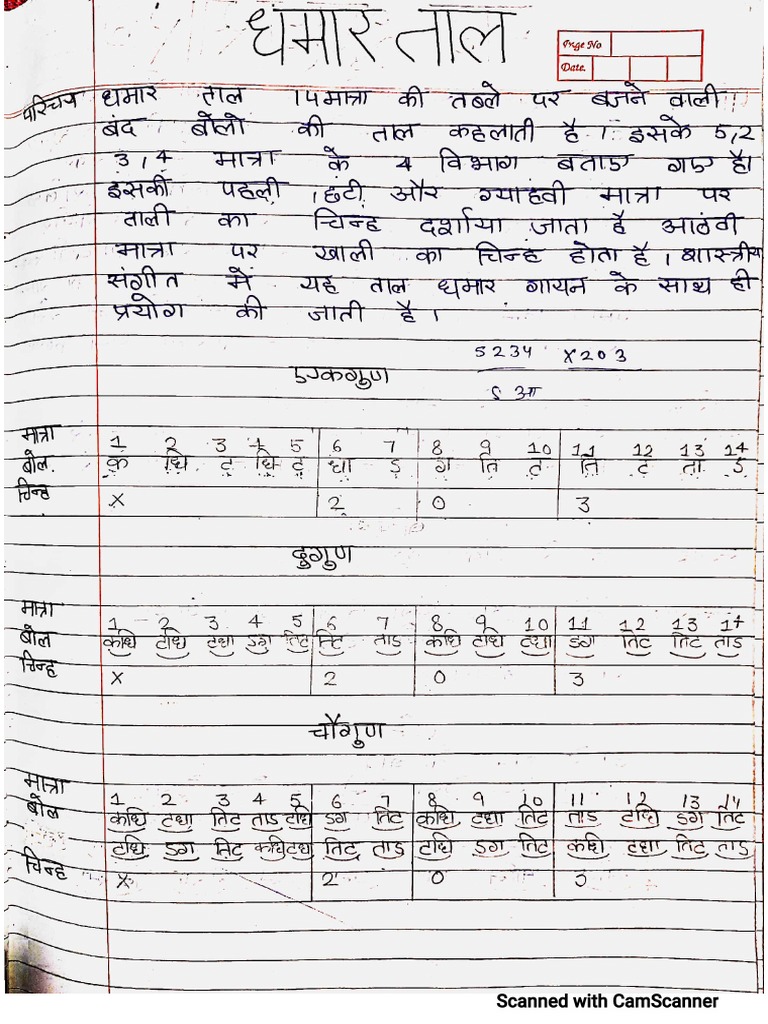 धमार ताल
Page No
Date.
परिचय धमार ताल 14मात्रा की तब्ले पर बजने वाली
बंद बोलो की ताल कहलाती है। इसके 5,2
3,4 मात्रा के 4 विभाग बताए गए है।
इसकी पहली, छटी और ग्याहंवी मात्रा पर
ताली का चिन्ह दर्शाया जाता है आठवी
मात्रा पर खाली का चिन्ह होता है। शास्त्रीय
संगीत में यह ताल धमार गायन के साथ ही
प्रयोग की जाती है।
5234 X203
एकगुण
ऽ आ
मात्रा 1 2 3 4 5 6 7 8 9 10 11 12 13 14
बोल क धि ट धि ट धा ऽ ग ति ट ति ट ता ऽ
चिन्ह X 2 0 3
दुगुण
मात्रा 1 2 3 4 5 6 7 8 9 10 11 12 13 14
बोल कधि टधि टधा ऽग तिट तिट ताऽ कधि टधि टधा ऽग तिट तिट ताऽ
चिन्ह X 2 0 3
चौगुण
मात्रा 1 2 3 4 5 6 7 8 9 10 11 12 13 14
बोल कधि टधा तिट ताऽ टधि ऽग तिट कधि टधा तिट ताऽ टधि ऽग तिट
टधि ऽग तिट कधि टधा तिट ताऽ टधि ऽग तिट कधि टधा तिट ताऽ
चिन्ह X 2 0 3
Scanned with CamScanner